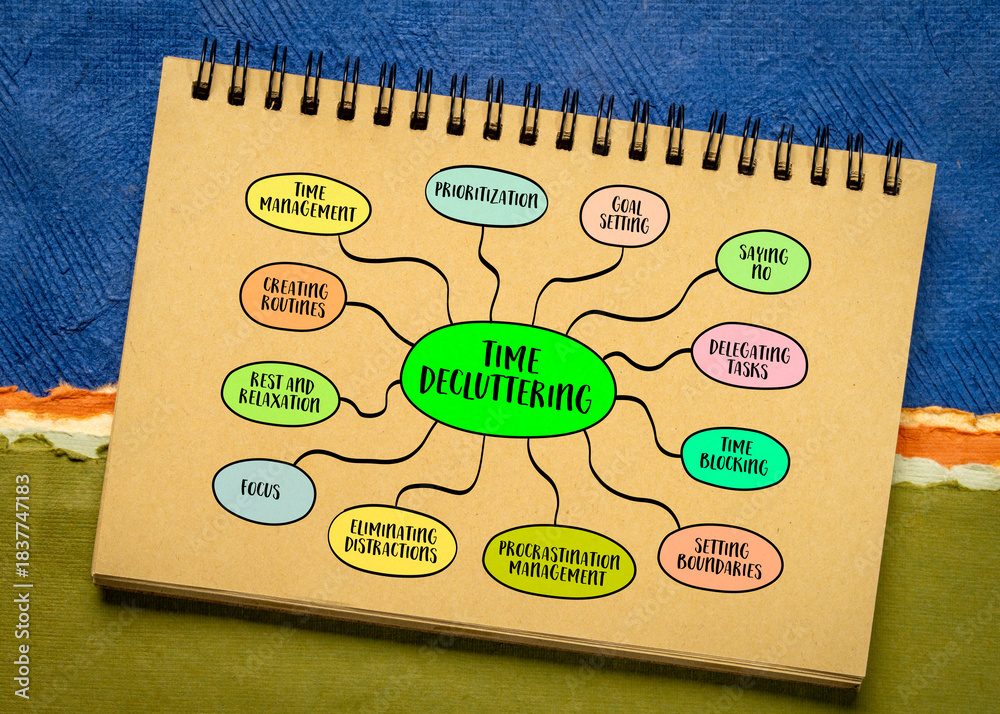 TIME
MANAGEMENT
PRIORITIZATION
GOAL
SETTING
SAYING
NO
CREATING
ROUTINES
TIME
DECLUTTERING
DELEGATING
TASKS
REST AND
RELAXATION
TIME
BLOCKING
FOCUS
ELIMINATING
DISTRACTIONS
PROCRASTINATION
MANAGEMENT
SETTING
BOUNDARIES
Adobe Stock | #1837747183